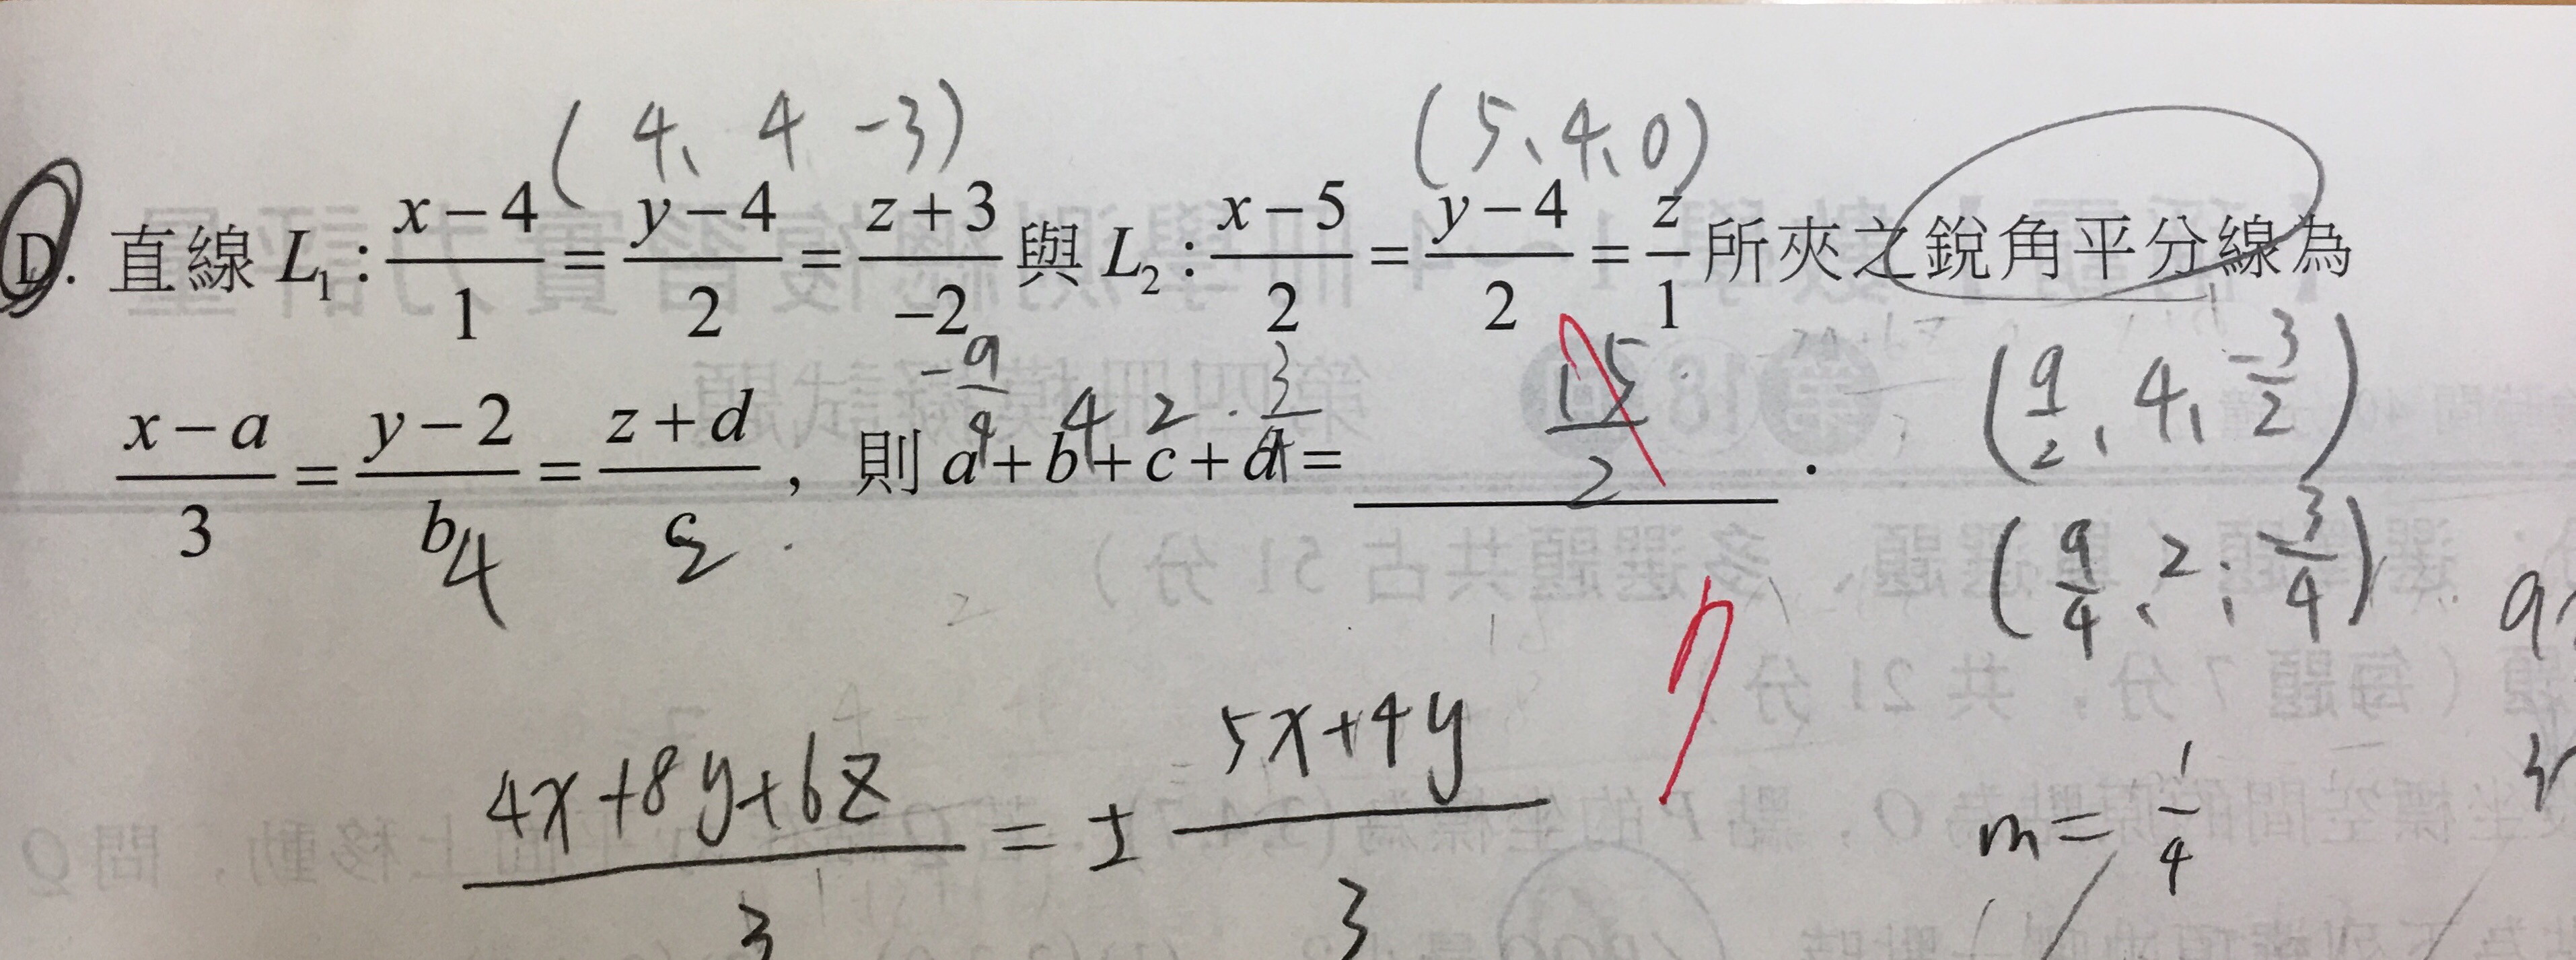 (4、4 -3) (5、4、0)
D. 直線 L₁ : (x-4)/1 = (y-4)/2 = (z+3)/-2 與 L₂ : (x-5)/2 = (y-4)/2 = z/1 所夾之銳角平分線為
(x-a)/3 = (y-2)/b = (z+d)/c , 則 a+b+c+d = 15/2 .
4 2
-9/4 4 2 3/4
(9/2、4、-3/2)
(9/4、2、-3/4)
(4x+8y+6z)/3 = ± (5x+4y)/3
m = 1/4